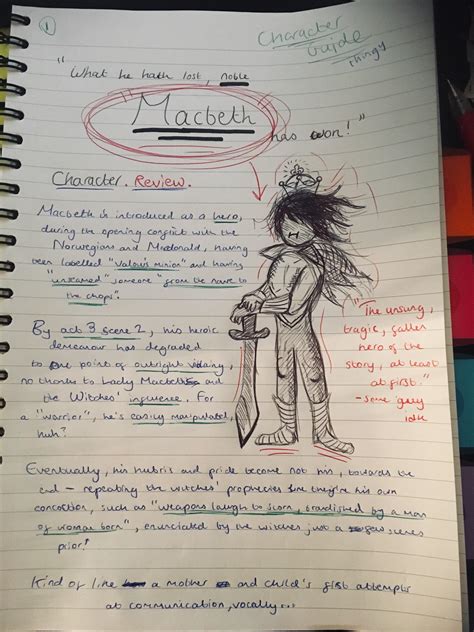 1
Character
Guide
thingy
"What he hath lost, noble
Macbeth
has won!"
Character Review.
Macbeth is introduced as a hero,
during the opening conflict with the
Norwegians and Macdonald, having
been labelled "Valour's minion" and having
"unseamed" someone "from the nave to
the chops".
By act 3 scene 2, his heroic
demeanour has degraded
to the point of outright villainy,
no thanks to Lady Macbeth and
the Witches' influence. For
a "warrior", he's easily manipulated,
huh?
"The unsung,
tragic, fallen
hero of the
story, at least
at first."
- some guy
idk
Eventually, his hubris and pride become not his, towards the
end – repeating the witches' prophecies like they're his own
concoction, such as "weapons laugh to scorn, brandished by a man
of woman born", enunciated by the witches just a few scenes
prior!
Kind of like a mother and child's first attempts
at communication, vocally...